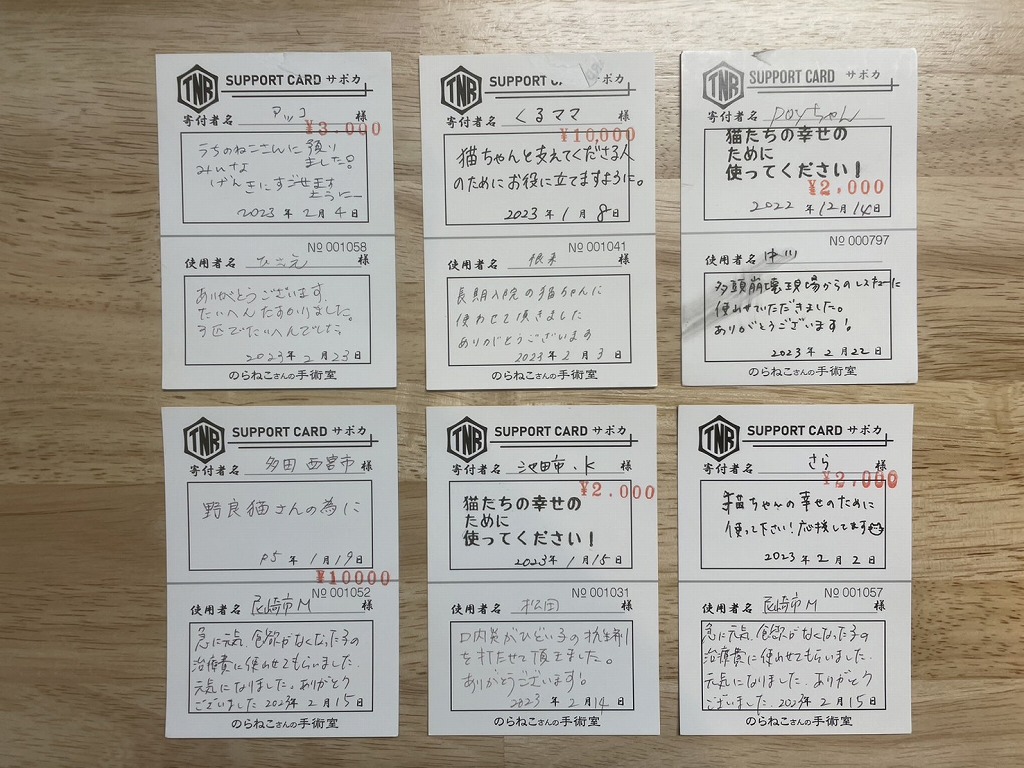 TNR SUPPORT CARD サポカ
寄付者名 アッコ 様
¥3,000
うちのねこさんに預り
みんな ました?
げんきにすごせます
ように
2023年 2月 4日
№ 001058
使用者名 様
ありがとうございます。
たいへんたすかりました。
3匹でたいへんでした
2023年 2月 23日
のらねこさんの手術室
TNR SUPPORT CARD サポカ
寄付者名 くるママ 様
¥10,000
猫ちゃんと支えてくださる人
のためにお役に立てますように。
2023年 1月 8日
№ 001041
使用者名 根来 様
長期入院の猫ちゃんに
使わせて頂きました
ありがとうございます
2023年 2月 3日
のらねこさんの手術室
TNR SUPPORT CARD サポカ
寄付者名 ROYちゃん 様
猫たちの幸せの
ために
使ってください!
¥2,000
2022年 12月 14日
№ 000797
使用者名 様
多頭崩壊現場からのレスキューに
使わせていただきました。
ありがとうございます!
2023年 2月 22日
のらねこさんの手術室
TNR SUPPORT CARD サポカ
寄付者名 多田 西宮市 様
野良猫さんの為に
R5年 1月 19日
¥10000
№ 001052
使用者名 尼崎市M 様
急に元気、食欲がなくなった子の
治療費に使わせてもらいました。
元気になりました。ありがとう
ございました 2023年 2月 15日
のらねこさんの手術室
TNR SUPPORT CARD サポカ
寄付者名 池田市.K 様
¥2,000
猫たちの幸せの
ために
使ってください!
2023年 1月 15日
№ 001031
使用者名 松田 様
口内炎がひどい子の抗生剤
を打たせて頂きました。
ありがとうございます。
2023年 2月 14日
のらねこさんの手術室
TNR SUPPORT CARD サポカ
寄付者名 さら 様
¥2,000
猫ちゃんの幸せのために
使って下さい!応援してます
2023年 2月 2日
№ 001057
使用者名 尼崎市M 様
急に元気、食欲がなくなった子の
治療費に使わせてもらいました。
元気になりました。ありがとう
ございました 2023年 2月 15日
のらねこさんの手術室